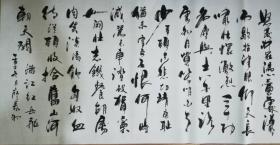 怒髮衝冠憑欄處瀟
瀟雨歇抬望眼仰天長
嘯壯懷激烈三十功
名塵與土八千里路
雲和月莫等閒白
了少年頭空悲切靖康耻
猶未雪臣子恨何時
滅駕長車踏破賀蘭
山缺壯志飢餐胡虜
肉笑談渴飲匈奴血
待從頭收拾舊山河
朝天闕 滿江紅岳飛